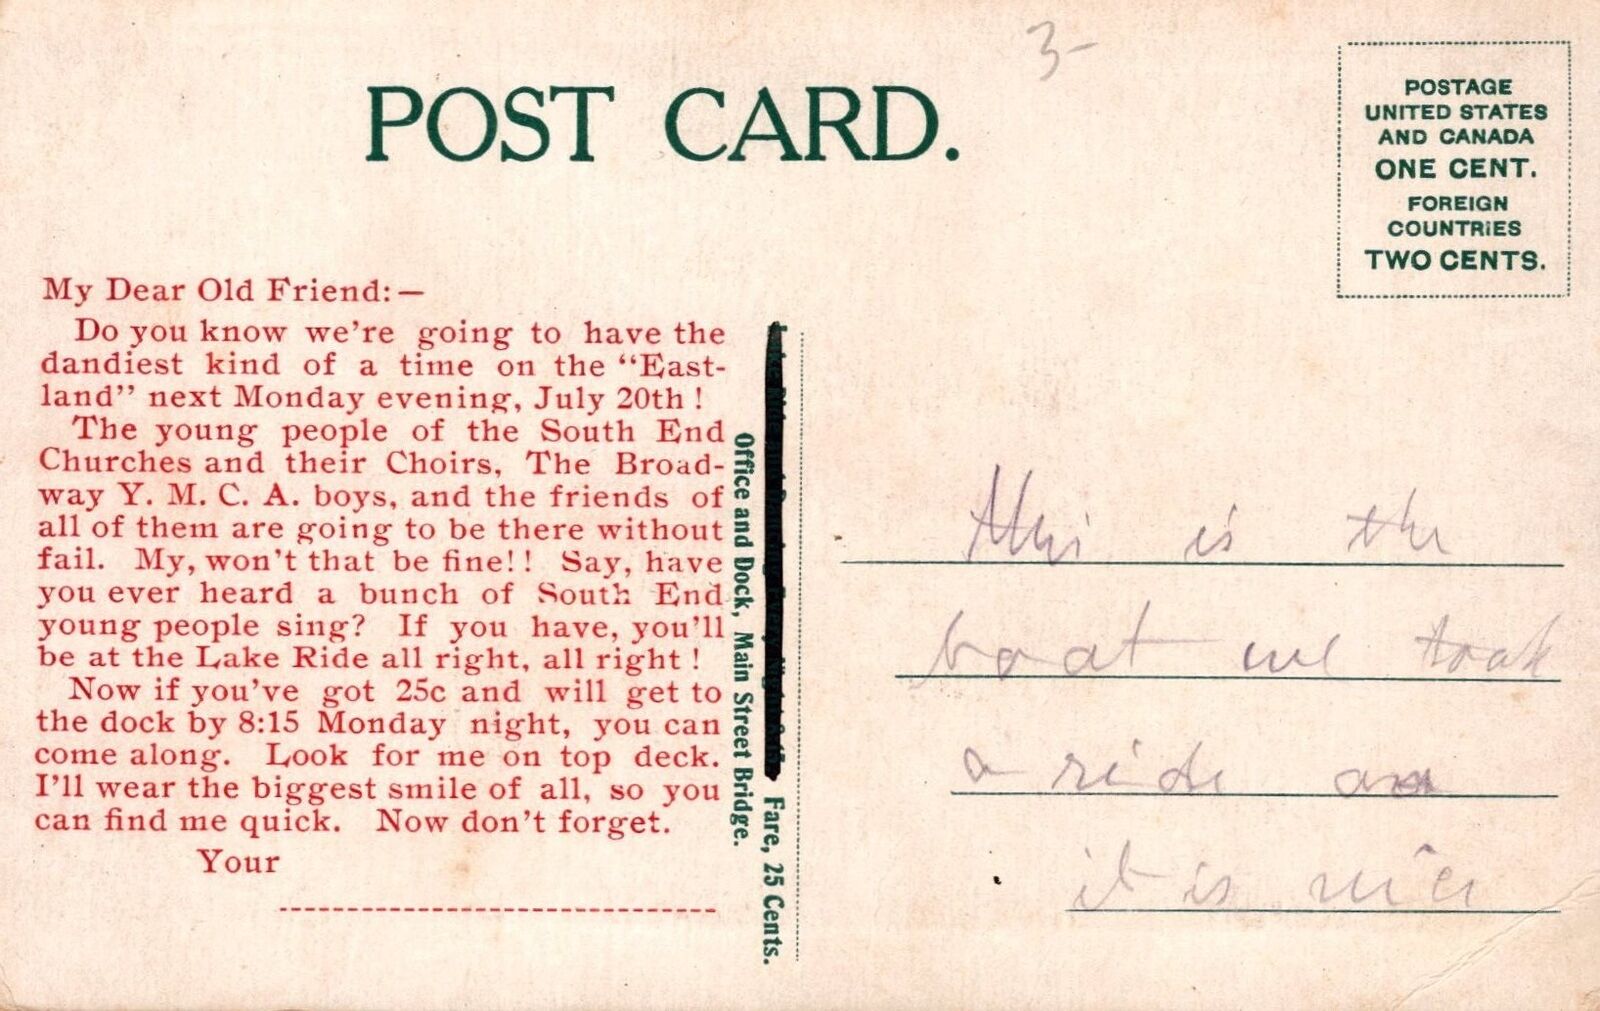 3-
POST CARD.
POSTAGE
UNITED STATES
AND CANADA
ONE CENT.
FOREIGN
COUNTRIES
TWO CENTS.
My Dear Old Friend:—
Do you know we're going to have the
dandiest kind of a time on the "East-
land" next Monday evening, July 20th !
The young people of the South End
Churches and their Choirs, The Broad-
way Y. M. C. A. boys, and the friends of
all of them are going to be there without
fail. My, won't that be fine!! Say, have
you ever heard a bunch of South End
young people sing? If you have, you'll
be at the Lake Ride all right, all right !
Now if you've got 25c and will get to
the dock by 8:15 Monday night, you can
come along. Look for me on top deck.
I'll wear the biggest smile of all, so you
can find me quick. Now don't forget.
Your
Lake Ride and Dancing Every Night 8:15. Fare, 25 Cents.
Office and Dock, Main Street Bridge.
this is the
boat we took
a ride on
it is nice